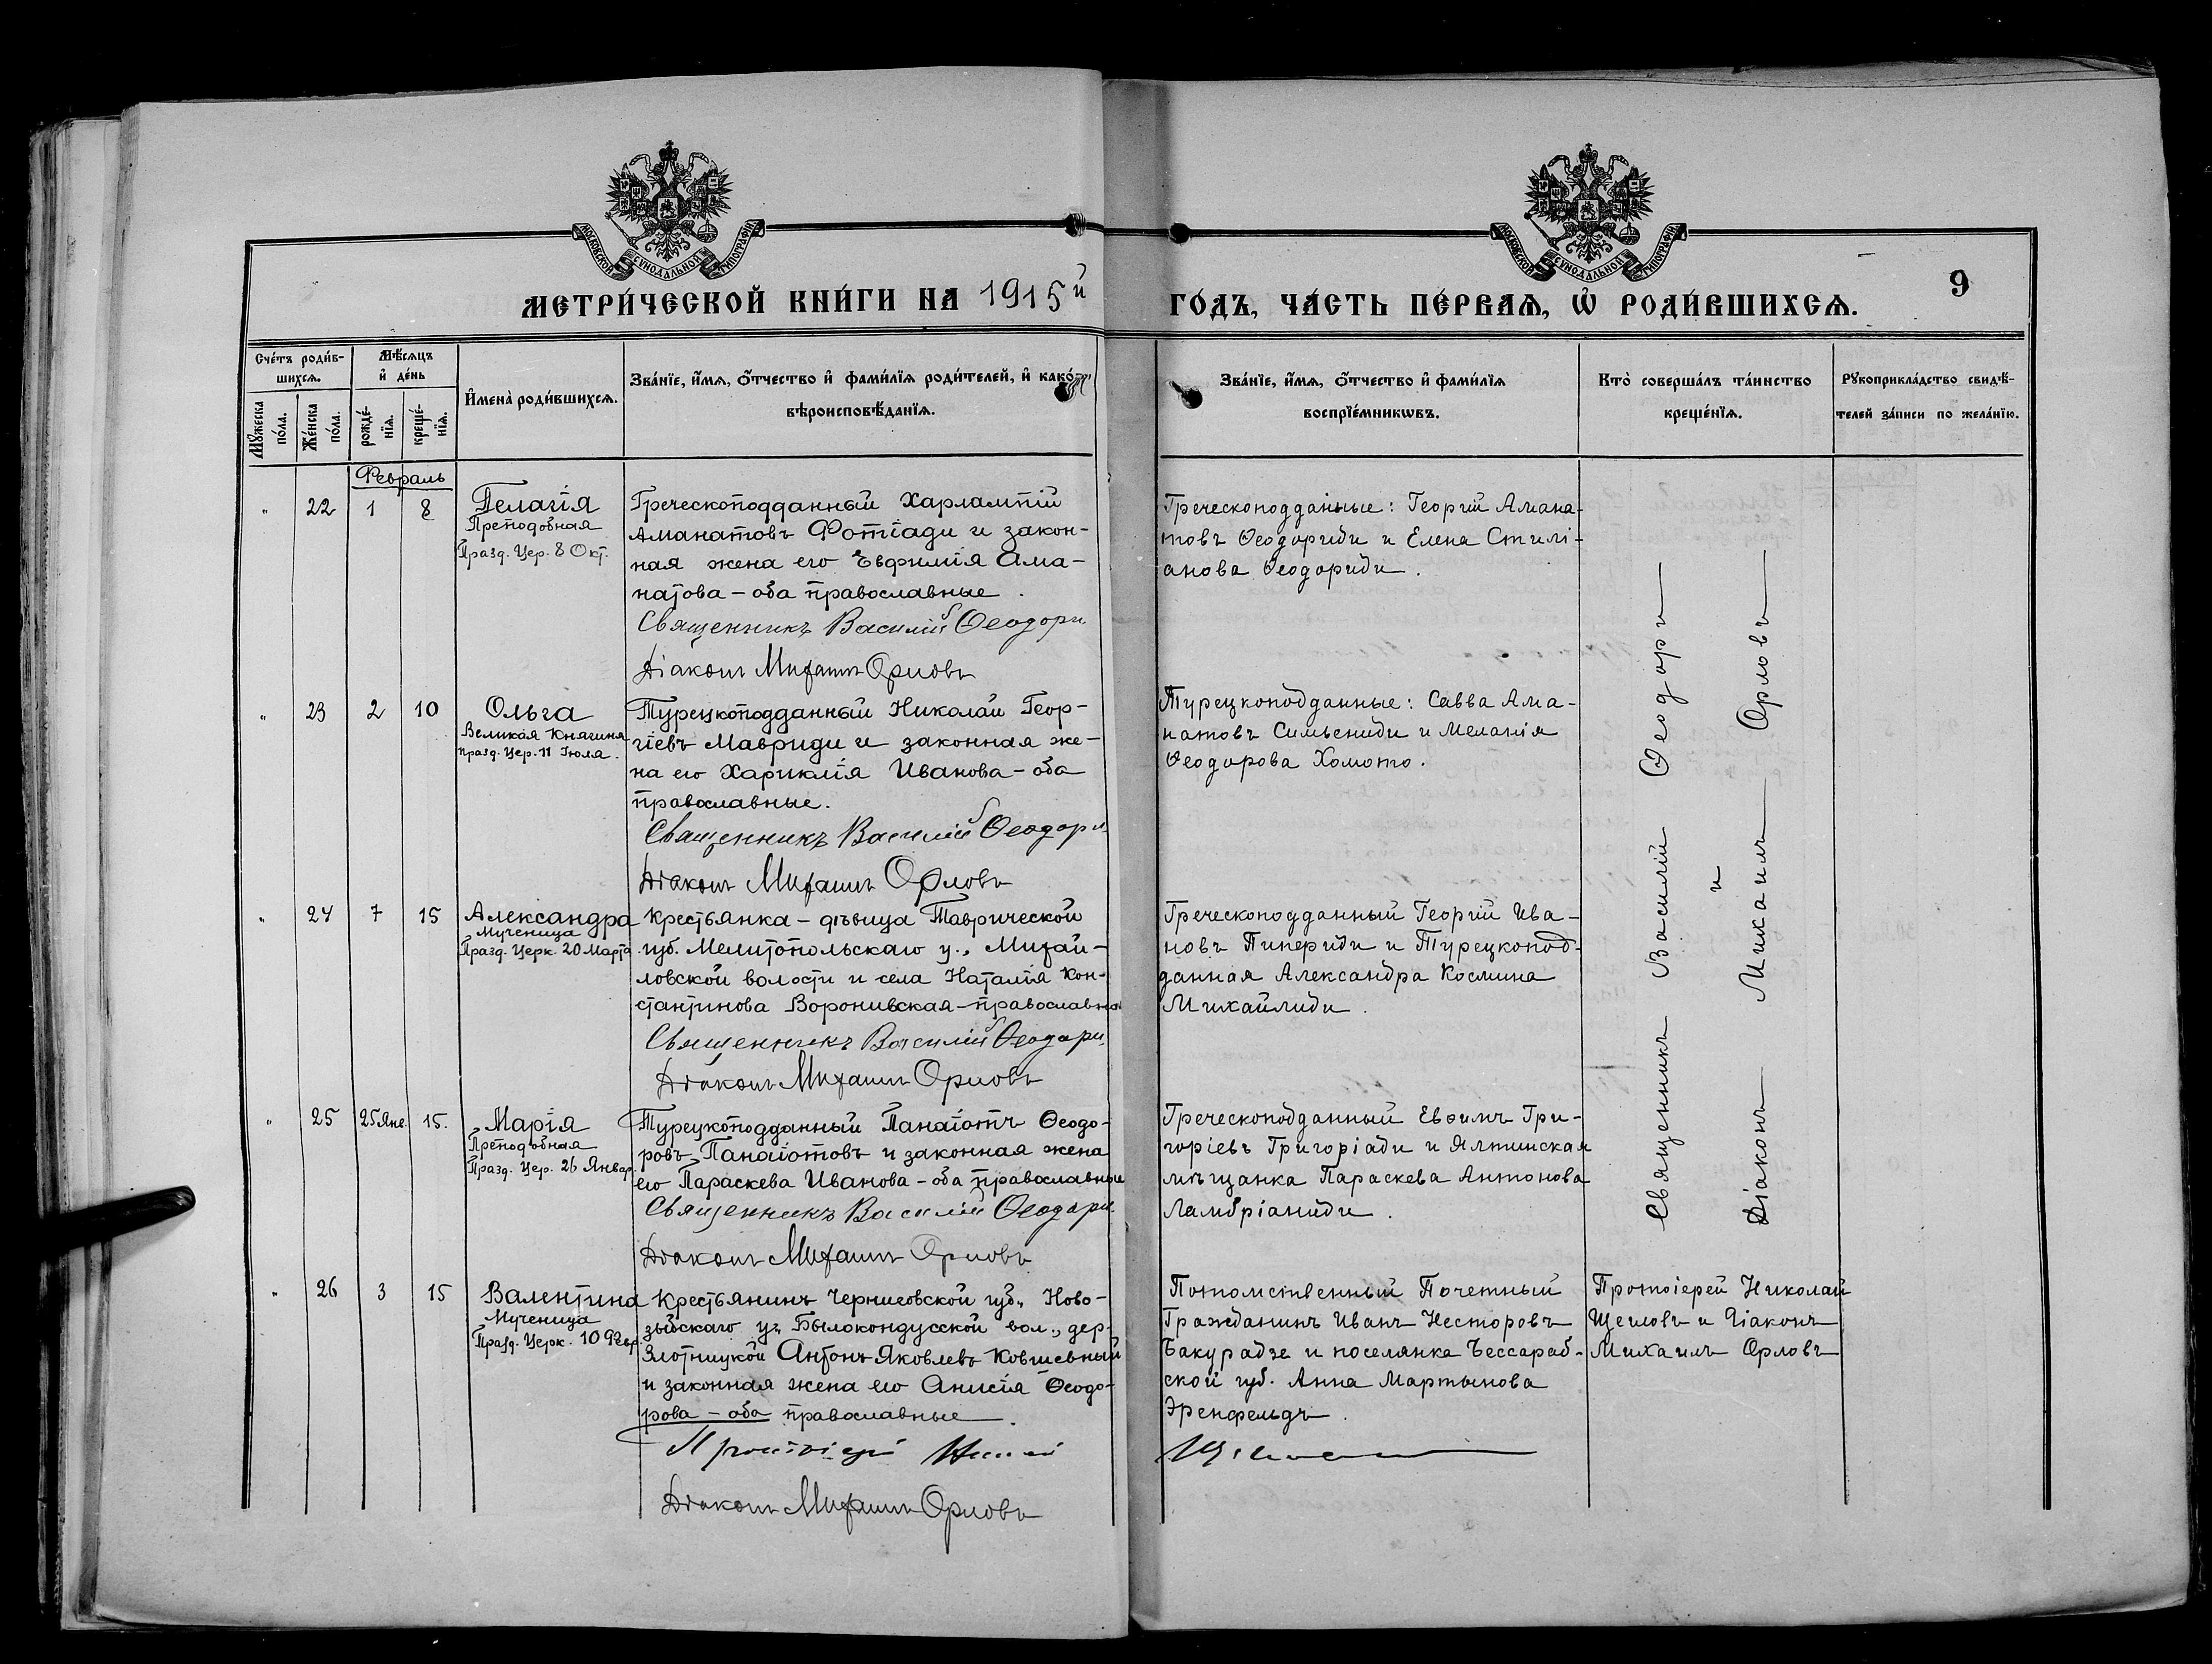 МОСКОВСКОЙ СѴНОДАЛЬНОЙ ТИПОГРАФІИ
МОСКОВСКОЙ СѴНОДАЛЬНОЙ ТИПОГРАФІИ
МЕТРИ́ЧЕСКОЙ КНИ́ГИ НА 1915й
ГО́ДЪ, ЧА́СТЬ ПЕ́РВАѦ, Ѡ҆ РОДИ́ВШИХСѦ.
9
Сче́тъ роди́в-
шихсѧ.
Мѣ́сѧцъ
и҆ де́нь
И҆мена̀ роди́вшихсѧ.
Зва́нїе, и҆́мѧ, о҆́тчество и҆ фами́лїѧ роди́телей, и҆ како́гѡ
вѣроисповѣ́данїѧ.
Мꙋ́жеска
по́ла.
Же́нска
по́ла.
рожде́-
нїѧ.
креще́-
нїѧ.
Зва́нїе, и҆́мѧ, о҆́тчество и҆ фами́лїѧ
воспрїе́мникѡвъ.
Кто̀ соверша́лъ та́инство
креще́нїѧ.
Рꙋкоприкла́дство свидѣ́-
телей за́писи по жела́нїю.
Февраль
" 22 1 8
Пелагія
Преподобная
Празд. Цер. 8 Окт.
Греческоподданный Харлампій
Аманатовъ Фотіади и закон-
ная жена его Евфимія Ама-
натова – оба православные.
Священникъ Василій Ѳеодори
Діаконъ Михаилъ Орловъ
Греческоподданные: Георгій Амана-
товъ Ѳеодориди и Елена Стилі-
анова Ѳеодориди.
" 23 2 10
Ольга
Великая Княгиня
празд. Цер. 11 Іюля.
Турецкоподданный Николай Геор-
гіевъ Мавриди и законная же-
на его Хариклія Иванова – оба
православные.
Священникъ Василій Ѳеодори
Діаконъ Михаилъ Орловъ
Турецкоподданные: Савва Ама-
натовъ Симьениди и Меланія
Ѳеодорова Хомото.
" 24 7 15
Александра
Мученица
Празд. Церк. 20 Марта
Крестьянка – дѣвица Таврической
губ. Мелитопольскаго у., Михай-
ловской волости и села Наталія Кон-
стантинова Воронивская – православная
Священникъ Василій Ѳеодори
Діаконъ Михаилъ Орловъ
Греческоподданный Георгій Ива-
новъ Пипериди и Турецкопод-
данная Александра Космина
Михайлиди.
" 25 25 Янв. 15.
Марія
Преподобная
Празд. Цер. 26 Январ.
Турецкоподданный Панаіотъ Ѳеодо-
ровъ Панаіотовъ и законная жена
его Параскева Иванова – оба православные
Священникъ Василій Ѳеодори
Діаконъ Михаилъ Орловъ
Греческоподданный Евѳимъ Гри-
горіевъ Григоріади и Ялтинская
мѣщанка Параскева Антонова
Ламбріаниди.
Священникъ Василій Ѳеодори
и
Діаконъ Михаилъ Орловъ
" 26 3 15
Валентина
Мученица
Празд. Церк. 10 Февр.
Крестьянинъ Черниговской губ., Ново-
зыбскаго у., вол., дер.
Злотницкой Антонъ Яковлевъ
и законная жена его Анисія Ѳеодо-
рова – оба православные.
Протоіерей
Діаконъ Михаилъ Орловъ
Потомственный Почетный
Гражданинъ Иванъ Несторовъ
Бакурадзе и поселянка Бессараб-
ской губ. Анна Мартынова
Эренфельдъ.
Протоіерей Николай
Щегловъ и Діаконъ
Михаилъ Орловъ